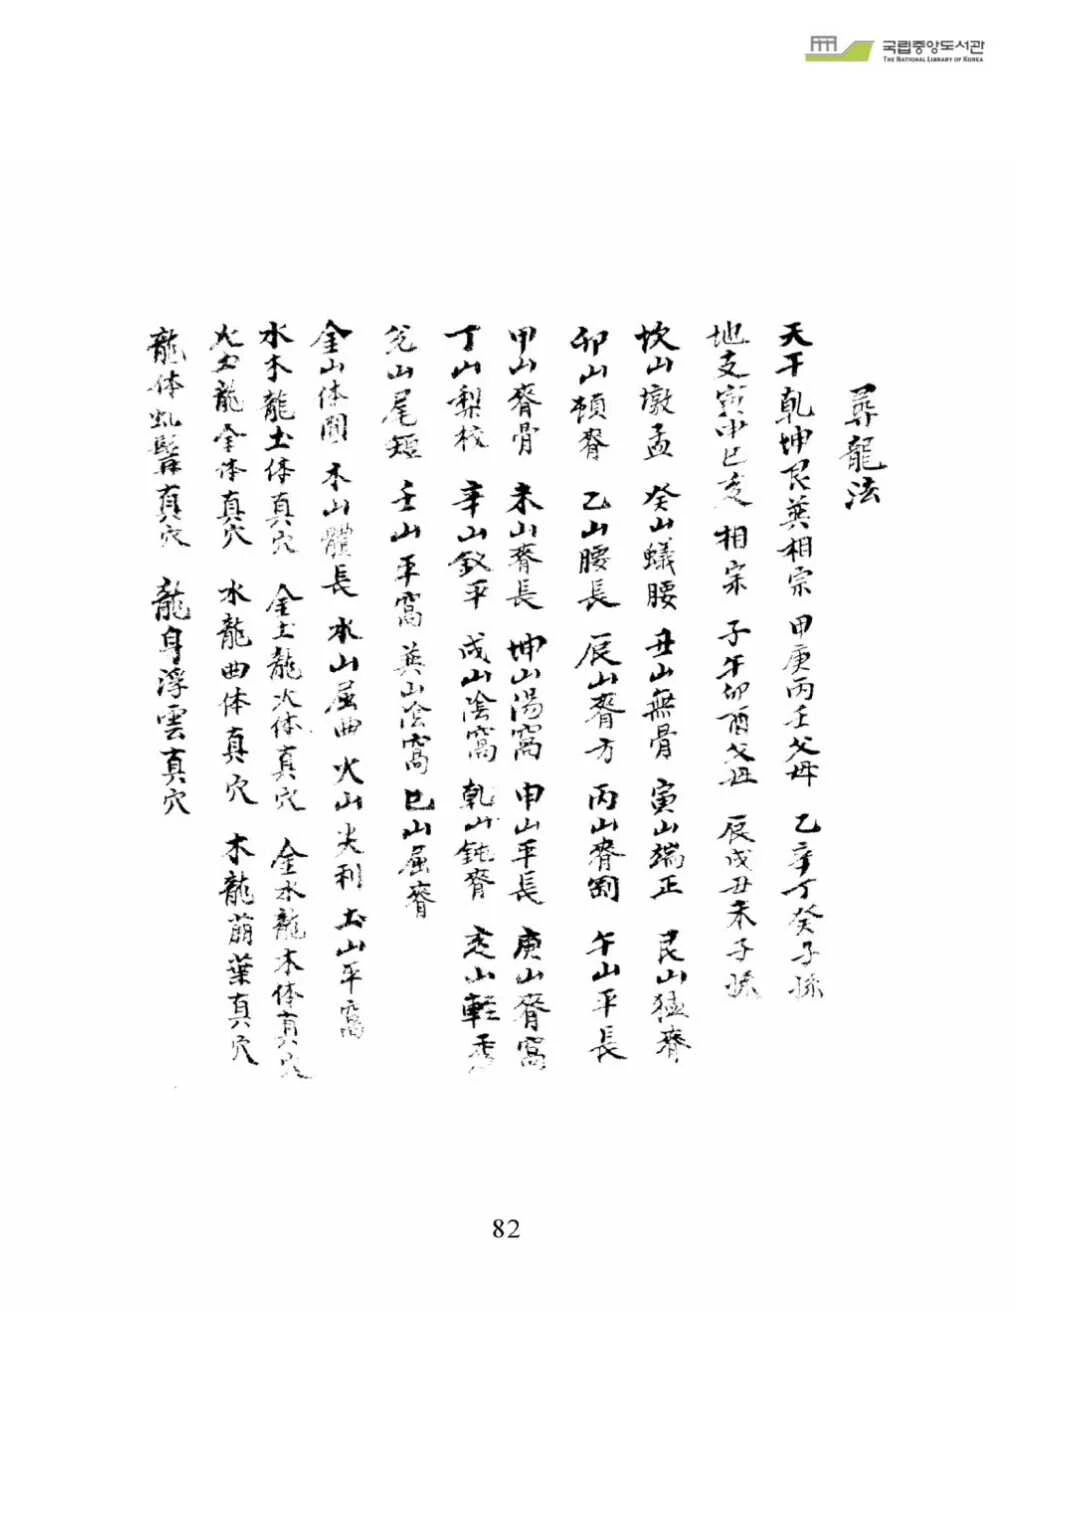 국립중앙도서관
THE NATIONAL LIBRARY OF KOREA
尋龍法
天干乾坤艮巽相宗 甲庚丙壬父母 乙辛丁癸子孫
地支寅申巳亥相宗 子午卯酉父母 辰戌丑未子孫
坎山墩孟 癸山蟻腰 丑山無骨 寅山端正 艮山猛脊
卯山頓脊 乙山腰長 辰山脊方 丙山脊 午山平長
甲山脊骨 未山脊長 坤山湯窩 申山平長 庚山脊窩
丁山梨枝 辛山釵平 戌山陰窩 乾山鈍脊 亥山輕
兌山尾短 壬山平窩 巽山陰窩 巳山屈脊
金山体圓 木山體長 水山屈曲 火山尖利 土山平窩
水木龍土体真穴 金土龍火体真穴 金水龍木体真穴
火土龍金体真穴 水龍曲体真穴 木龍萠葉真穴
龍体虬髯真穴 龍身浮雲真穴
82